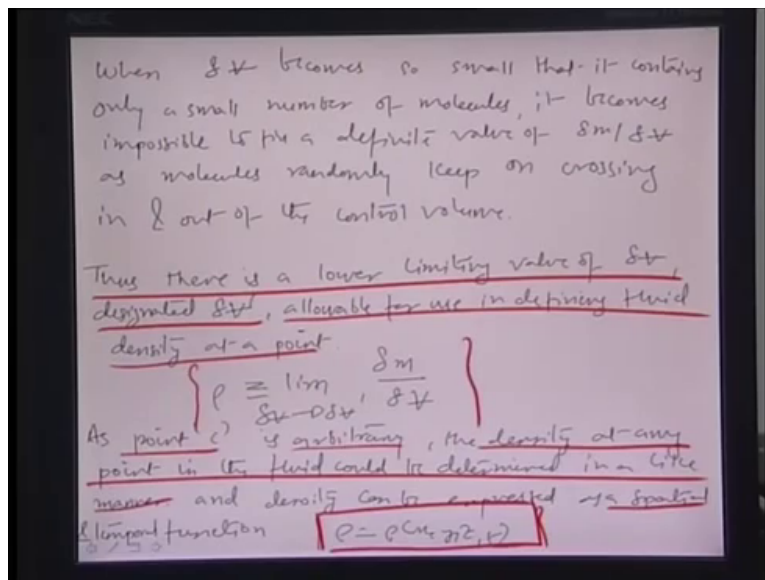 When δV becomes so small that it contains
only a small number of molecules, it becomes
impossible to fix a definite value of δm/δV
as molecules randomly keep on crossing
in & out of the control volume.
Thus there is a lower limiting value of δV,
designated δV', allowable for use in defining fluid
density at a point.
ρ ≡ lim δV→δV' δm/δV
As point 'C' is arbitrary, the density at any
point in the fluid could be determined in a like
manner and density can be expressed as a spatial
& temporal function ρ = ρ(x, y, z, t)